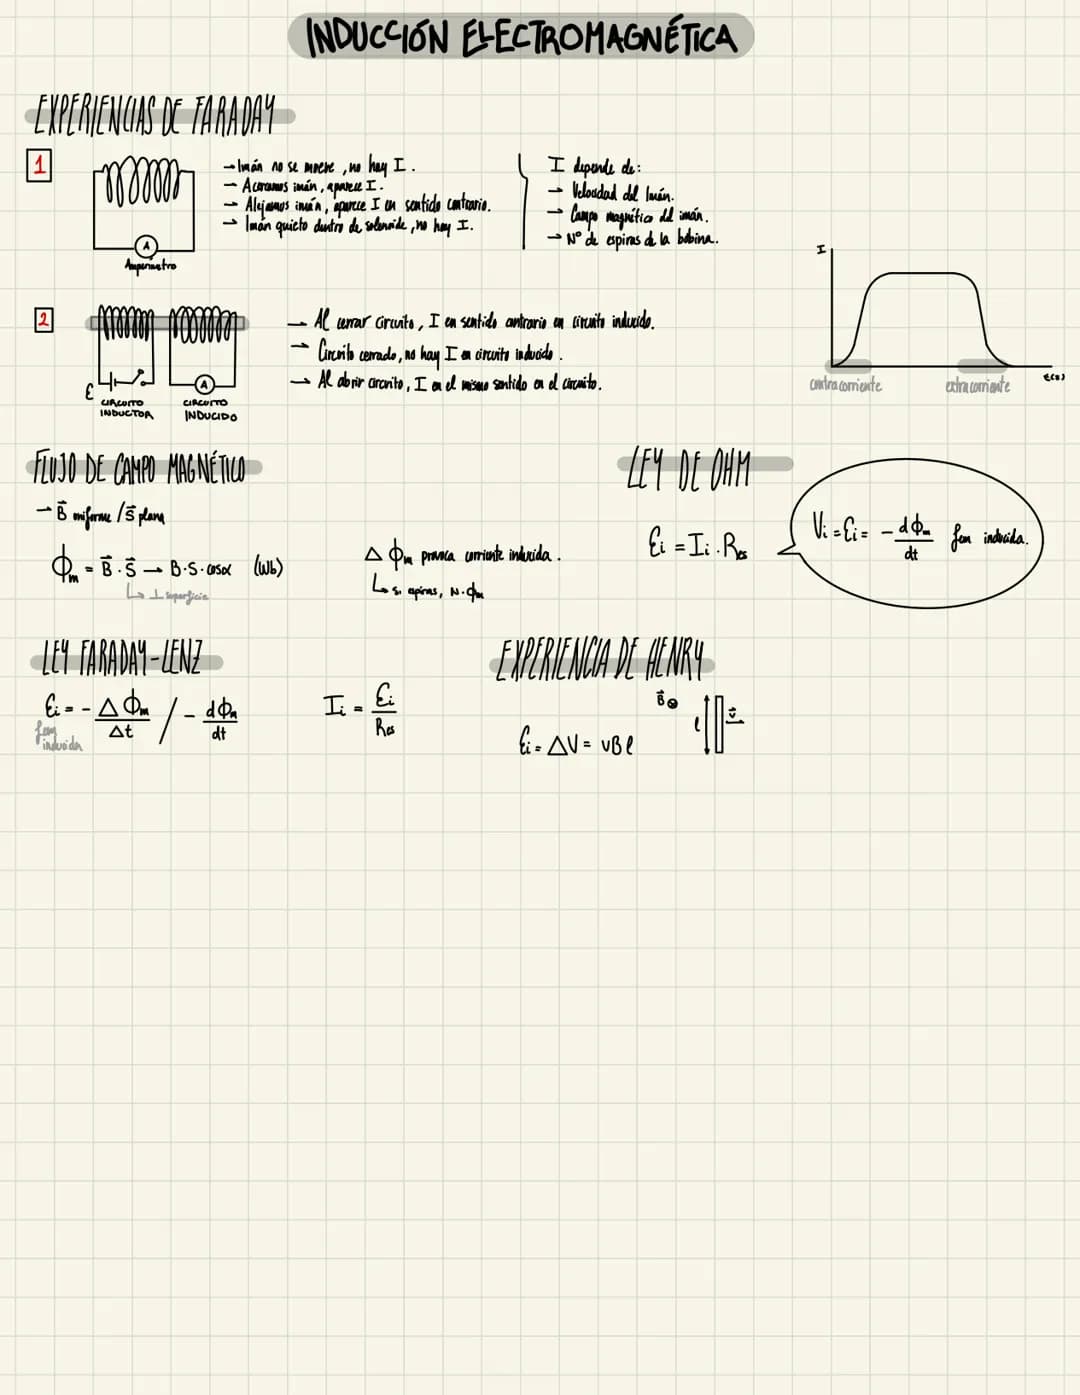 INDUCCIÓN ELECTROMAGNÉTICA
EXPERIENCIAS DE FARADAY
1
→ Imán no se mueve, no hay I.
→ Acercamos imán, aparece I.
→ Alejamos imán, aparece I en sentido contrario.
→ Imán quieto dentro de solenoide, no hay I.
A
Amperímetro
I depende de:
→ Velocidad del Imán.
→ Campo magnético del imán.
→ Nº de espiras de la bobina.
I
t(s)
contracorriente
extracorriente
2
→ Al cerrar circuito, I en sentido contrario en circuito inducido.
→ Circuito cerrado, no hay I en circuito inducido.
→ Al abrir circuito, I en el mismo sentido en el circuito.
ε
A
CIRCUITO INDUCTOR
CIRCUITO INDUCIDO
FLUJO DE CAMPO MAGNÉTICO
→ B⃗ uniforme / S⃗ plana
Φm = B⃗ · S⃗ → B·S·cosα (Wb)
↳ ⊥ superficie
Δ Φm provoca corriente inducida.
↳ si espiras, N·Φm
LEY DE OHM
Ei = Ii · Res
Vi = Ei = - dΦm/dt fem inducida.
LEY FARADAY-LENZ
Ei = - ΔΦm/Δt / - dΦm/dt
fem inducida
Ii = Ei/Res
EXPERIENCIA DE HENRY
Ei = ΔV = vBl
B⃗ ⊗
l
v⃗